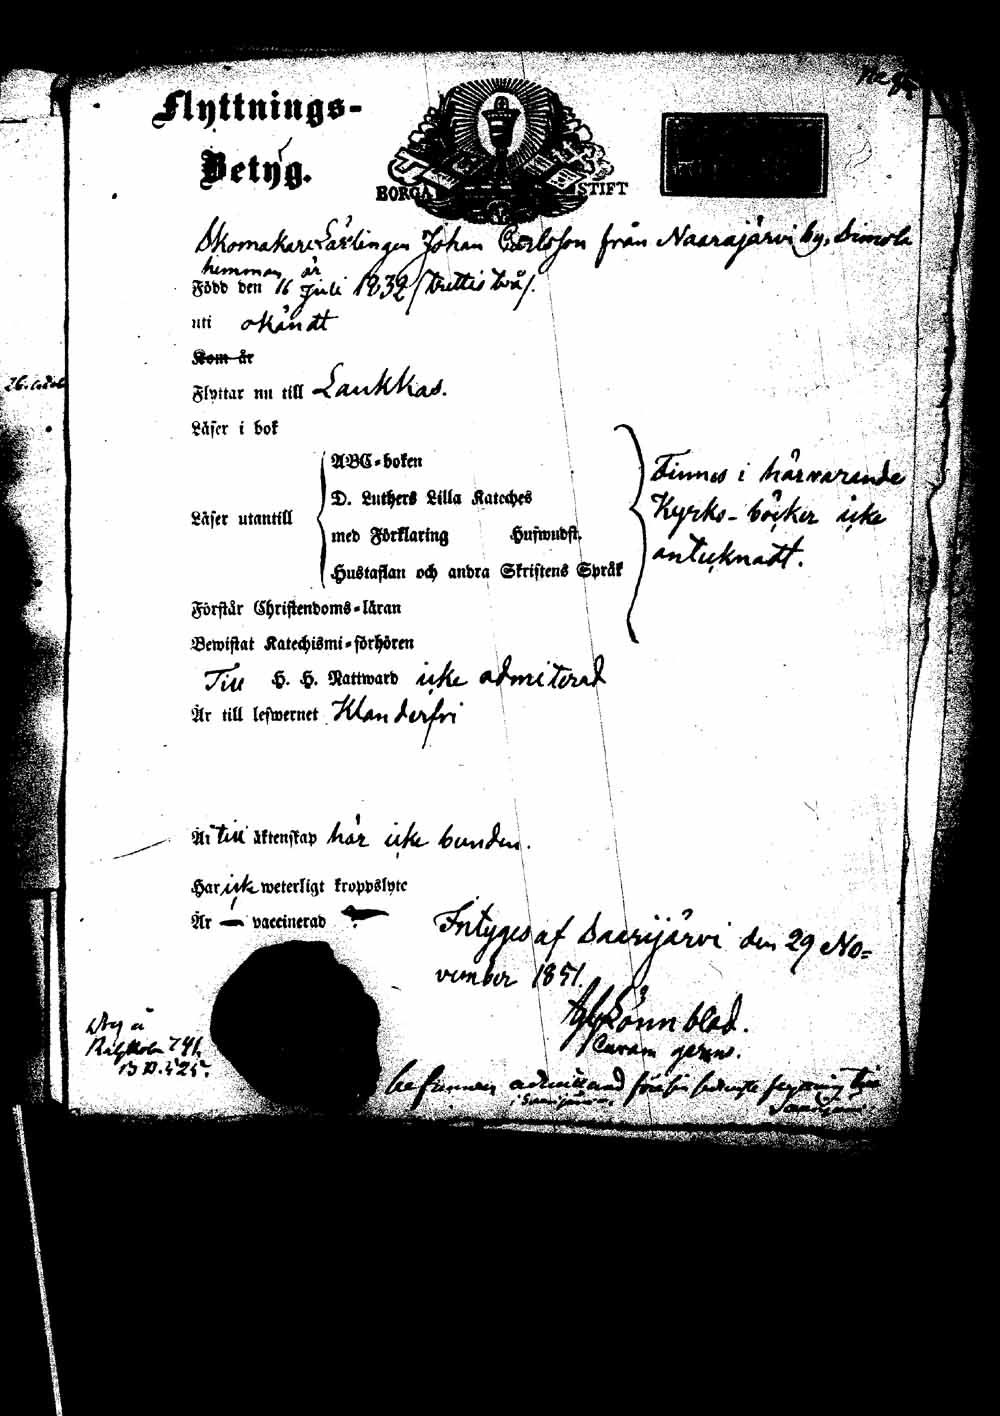 Flyttnings-
Betyg.
BORGÅ STIFT
Skomakare Lärlingen Johan Carlsson från Naarajärvi by, Simola
hemman är
Född den 16 Juli 1832 /trettio två/.
uti okändt
Kom år
Flyttar nu till Laukkas.
Läser i bok
ABC-boken
D. Luthers Lilla Kateches
Läser utantill
med Förklaring Huswudst.
Hustaflan och andra Skriftens Språk
Finnes i härvarande
Kyrko-böcker icke
antecknadt.
Förstår Christendoms-läran
Bewistat Katechismi-förhören
Till H. H. Nattward icke admitterad
Är till lefwernet Klanderfri
Är till äktenskap här icke bunden.
Har icke weterligt kroppslyte
Är — vaccinerad
Intygas af Saarijärvi den 29 No=
vember 1851.
Lönnblad.
Curam gerens.
befunnen admitterad flyttning till